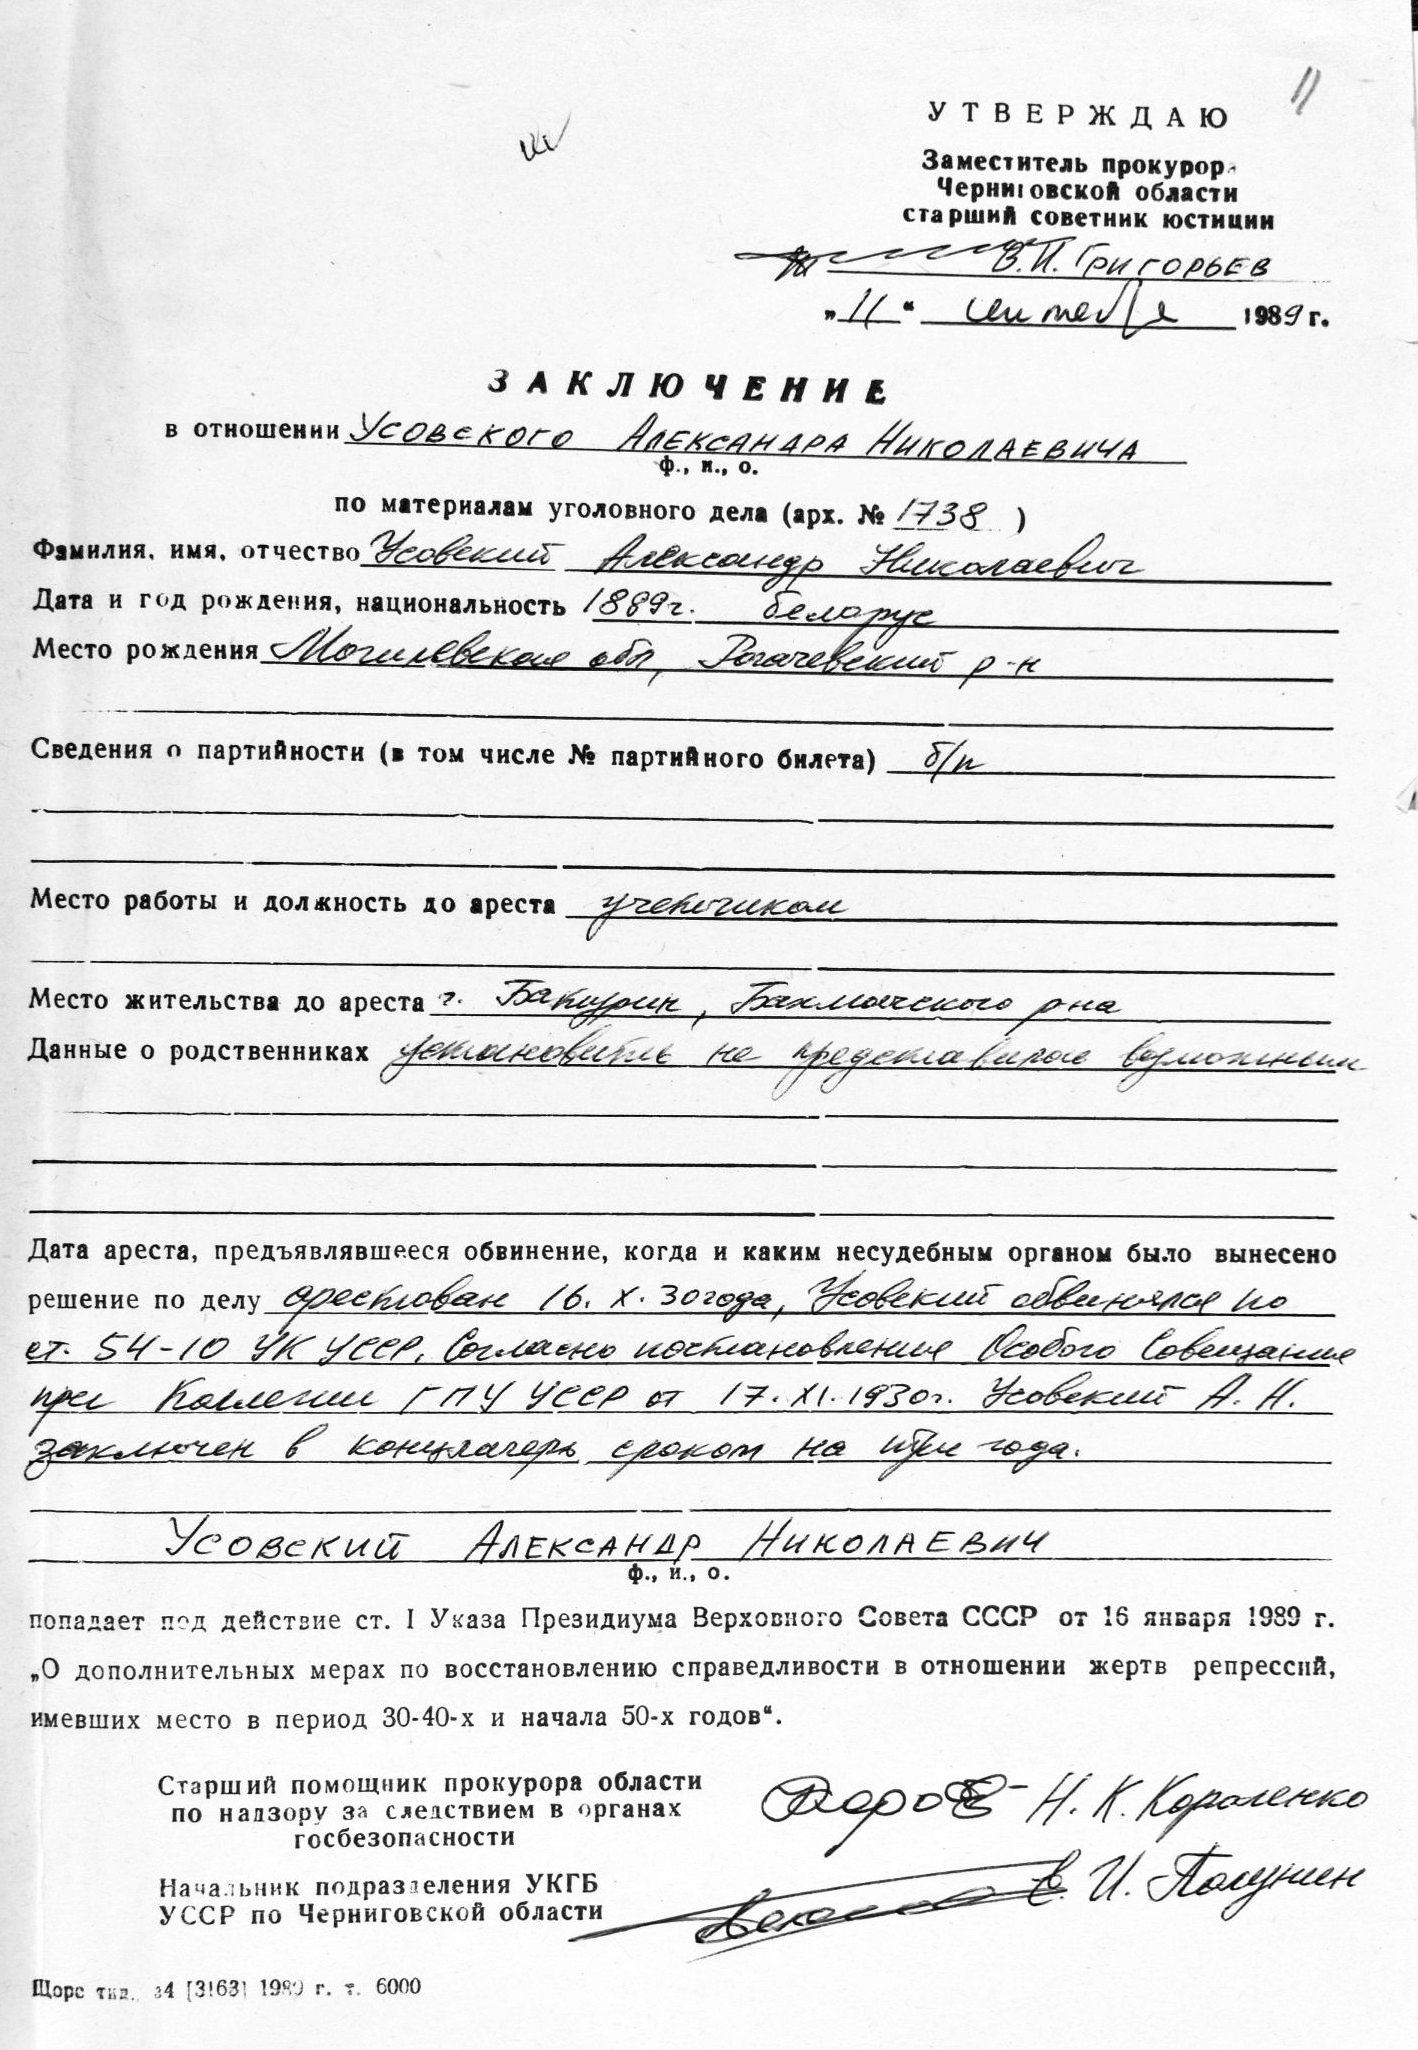 11
УТВЕРЖДАЮ
Заместитель прокурора
Черниговской области
старший советник юстиции
В.П. ГРИГОРЬЕВ
„11“ сентября 1989 г.
ЗАКЛЮЧЕНИЕ
в отношении УСОВСКОГО АЛЕКСАНДРА НИКОЛАЕВИЧА
ф., и., о.
по материалам уголовного дела (арх. № 1738 )
Фамилия, имя, отчество Усовский Александр Николаевич
Дата и год рождения, национальность 1889г. беларус
Место рождения Могилевская обл, Рогачевский р-н
Сведения о партийности (в том числе № партийного билета) б/п
Место работы и должность до ареста учетчиком
Место жительства до ареста г. Батурин, Бахмачского р-на
Данные о родственниках установить не представилось возможным
Дата ареста, предъявлявшееся обвинение, когда и каким несудебным органом было вынесено
решение по делу арестован 16. X. 30 года, Усовский обвинялся по
ст. 54-10 УК УССР. Согласно постановления Особого Совещания
при Коллегии ГПУ УССР от 17. XI. 1930г. Усовский А. Н.
заключен в концлагерь сроком на три года.
УСОВСКИЙ АЛЕКСАНДР НИКОЛАЕВИЧ
ф., и., о.
попадает под действие ст. I Указа Президиума Верховного Совета СССР от 16 января 1989 г.
„О дополнительных мерах по восстановлению справедливости в отношении жертв репрессий,
имевших место в период 30-40-х и начала 50-х годов“.
Старший помощник прокурора области
по надзору за следствием в органах
госбезопасности
Н. К. Короленко
Начальник подразделения УКГБ
УССР по Черниговской области
В. И. Полунин
Щорс 34 [3163] 1989 г. т. 6000